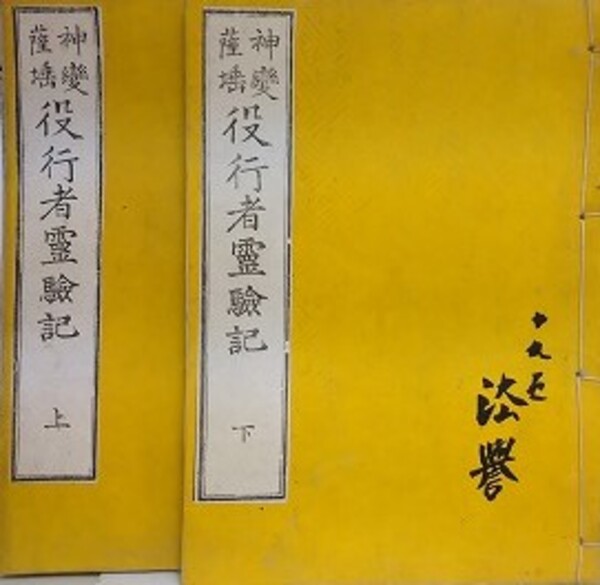 神變
薩埵
役行者靈驗記
上
神變
薩埵
役行者靈驗記
下
十九
法譽